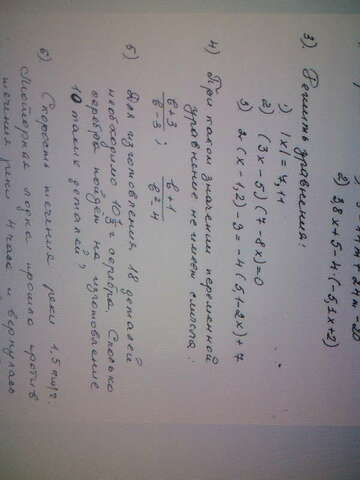 2) 3,8x + 5 - 4 (-5,1x + 2)
3) Решить уравнения:
1) |x| = 4,11
2) (3x - 5) (7 - 8x) = 0
3) 2 (x - 1,2) - 3 = -4 (5,1 - 2x) + 7
4) При каком значении переменной
уравнение не имеет смысла:
в+3/в-3 ; в+1/в²-4
5) Для изготовления 18 деталей
необходимо 10 г серебра. Сколько
серебра пойдёт на изготовление
10 таких деталей?
6) Скорость течения реки 1,5 км/ч.
Моторная лодка прошла против
течения реки 4 часа и вернулась